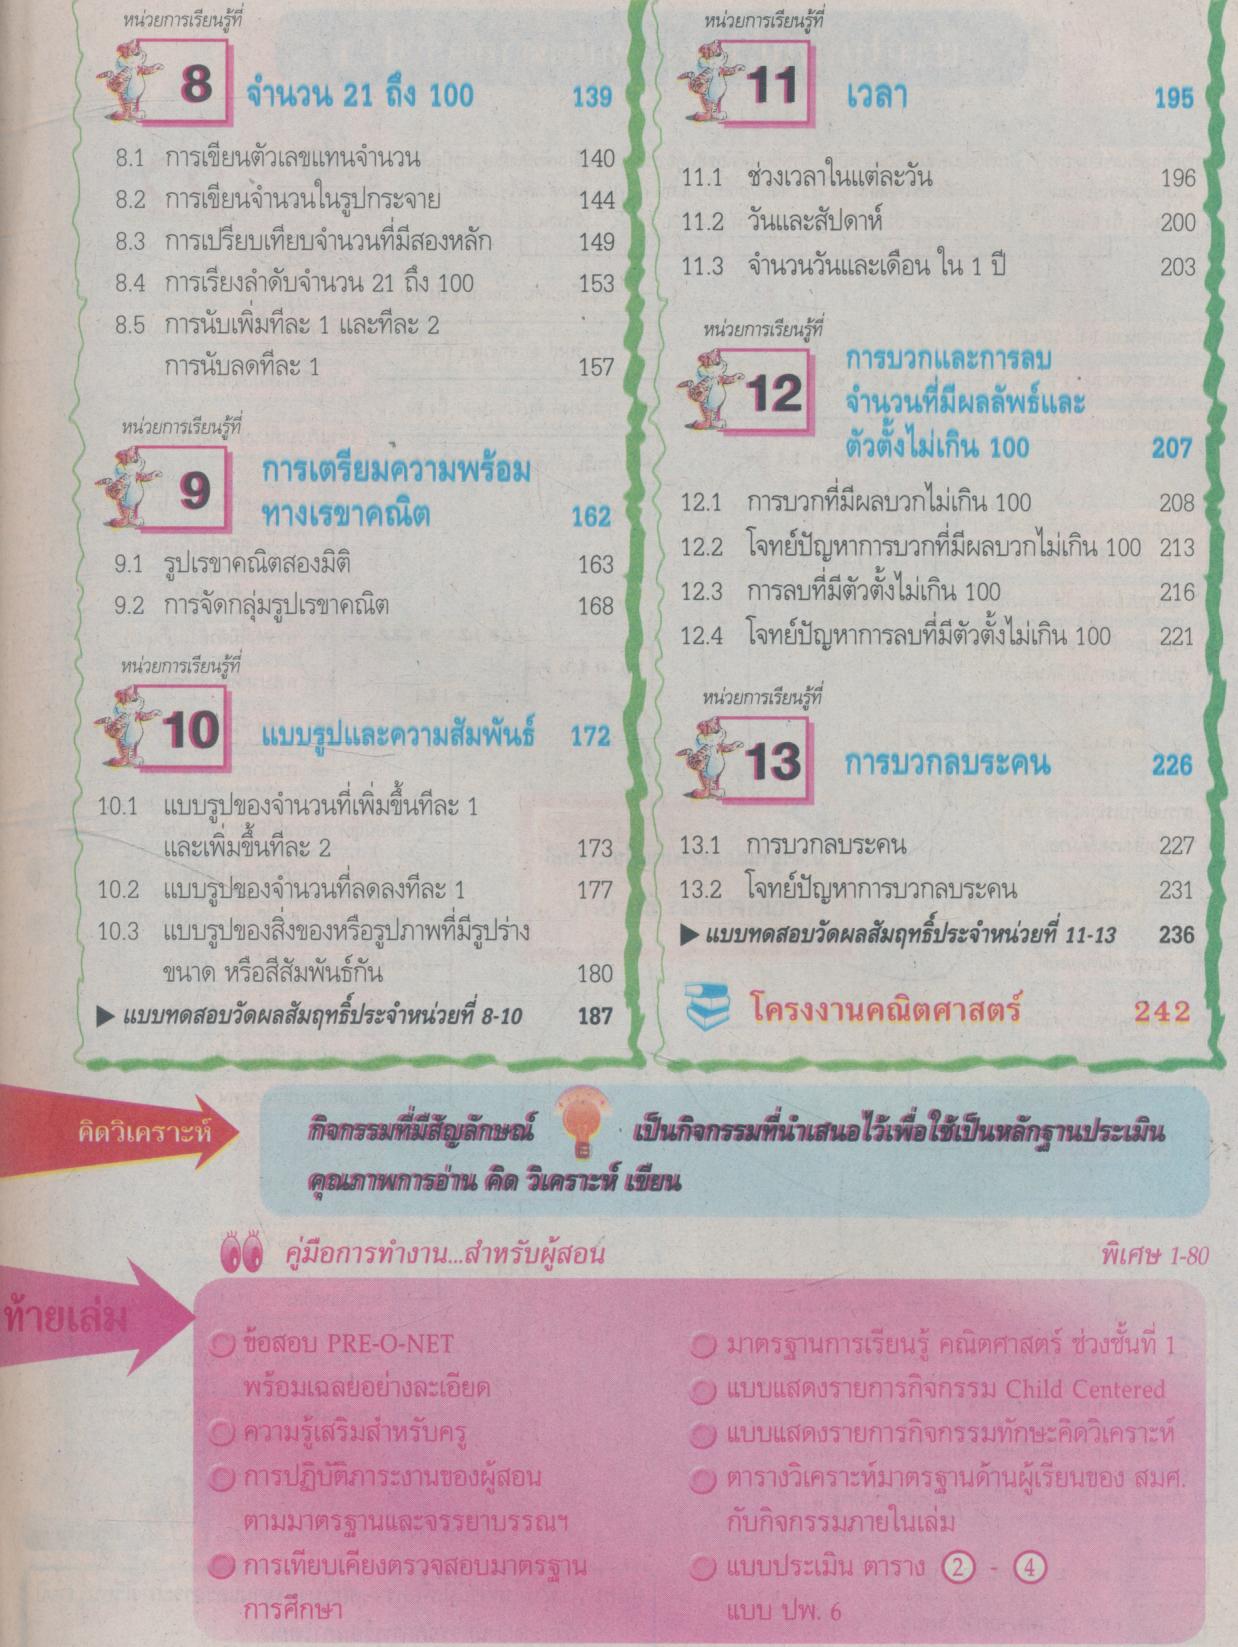 หน่วยการเรียนรู้ที่
8 จำนวน 21 ถึง 100 139
8.1 การเขียนตัวเลขแทนจำนวน 140
8.2 การเขียนจำนวนในรูปกระจาย 144
8.3 การเปรียบเทียบจำนวนที่มีสองหลัก 149
8.4 การเรียงลำดับจำนวน 21 ถึง 100 153
8.5 การนับเพิ่มทีละ 1 และทีละ 2
การนับลดทีละ 1 157
หน่วยการเรียนรู้ที่
9 การเตรียมความพร้อม
ทางเรขาคณิต 162
9.1 รูปเรขาคณิตสองมิติ 163
9.2 การจัดกลุ่มรูปเรขาคณิต 168
หน่วยการเรียนรู้ที่
10 แบบรูปและความสัมพันธ์ 172
10.1 แบบรูปของจำนวนที่เพิ่มขึ้นทีละ 1
และเพิ่มขึ้นทีละ 2 173
10.2 แบบรูปของจำนวนที่ลดลงทีละ 1 177
10.3 แบบรูปของสิ่งของหรือรูปภาพที่มีรูปร่าง
ขนาด หรือสีสัมพันธ์กัน 180
▶ แบบทดสอบวัดผลสัมฤทธิ์ประจำหน่วยที่ 8-10 187
หน่วยการเรียนรู้ที่
11 เวลา 195
11.1 ช่วงเวลาในแต่ละวัน 196
11.2 วันและสัปดาห์ 200
11.3 จำนวนวันและเดือน ใน 1 ปี 203
หน่วยการเรียนรู้ที่
12 การบวกและการลบ
จำนวนที่มีผลลัพธ์และ
ตัวตั้งไม่เกิน 100 207
12.1 การบวกที่มีผลบวกไม่เกิน 100 208
12.2 โจทย์ปัญหาการบวกที่มีผลบวกไม่เกิน 100 213
12.3 การลบที่มีตัวตั้งไม่เกิน 100 216
12.4 โจทย์ปัญหาการลบที่มีตัวตั้งไม่เกิน 100 221
หน่วยการเรียนรู้ที่
13 การบวกลบระคน 226
13.1 การบวกลบระคน 227
13.2 โจทย์ปัญหาการบวกลบระคน 231
▶ แบบทดสอบวัดผลสัมฤทธิ์ประจำหน่วยที่ 11-13 236
โครงงานคณิตศาสตร์ 242
คิดวิเคราะห์
กิจกรรมที่มีสัญลักษณ์ เป็นกิจกรรมที่นำเสนอไว้เพื่อใช้เป็นหลักฐานประเมิน
คุณภาพการอ่าน คิด วิเคราะห์ เขียน
คู่มือการทำงาน...สำหรับผู้สอน พิเศษ 1-80
ท้ายเล่ม
ข้อสอบ PRE-O-NET
พร้อมเฉลยอย่างละเอียด
ความรู้เสริมสำหรับครู
การปฏิบัติภาระงานของผู้สอน
ตามมาตรฐานและจรรยาบรรณฯ
การเทียบเคียงตรวจสอบมาตรฐาน
การศึกษา
มาตรฐานการเรียนรู้ คณิตศาสตร์ ช่วงชั้นที่ 1
แบบแสดงรายการกิจกรรม Child Centered
แบบแสดงรายการกิจกรรมทักษะคิดวิเคราะห์
ตารางวิเคราะห์มาตรฐานด้านผู้เรียนของ สมศ.
กับกิจกรรมภายในเล่ม
แบบประเมิน ตาราง ② - ④
แบบ ปพ. 6